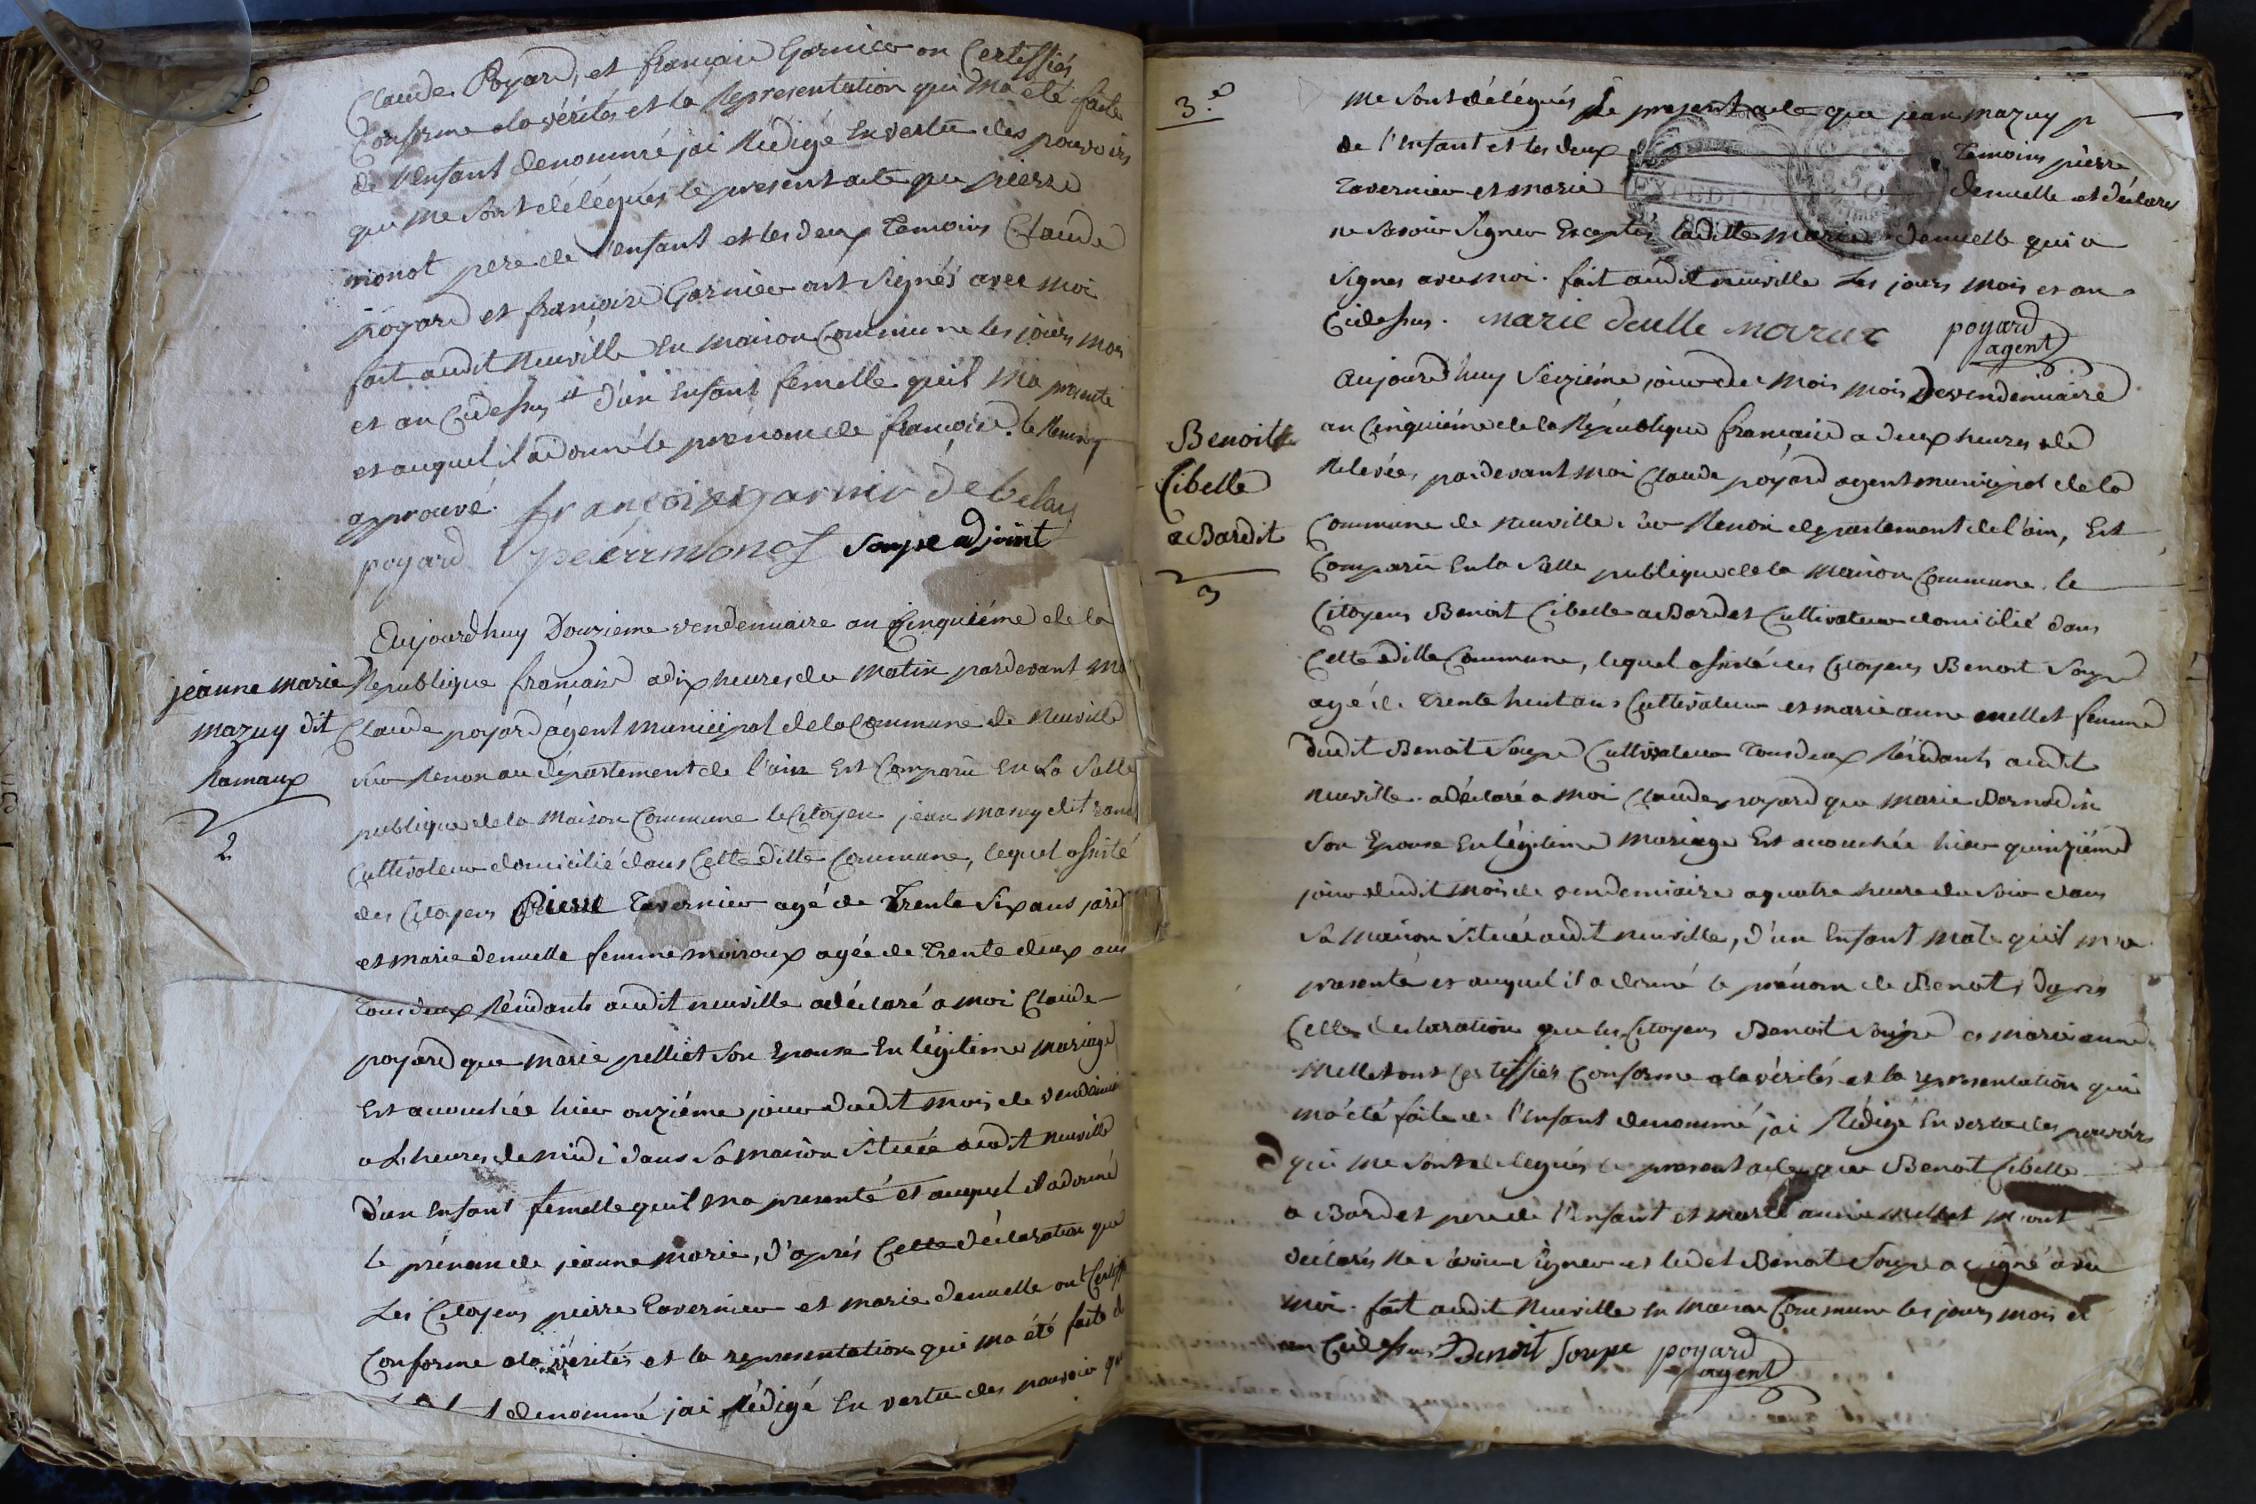 Claude Poyard, et françoise Garnier on Certiffiés
Conforme ala vérités et la Representation qui Ma eté faite
de l'enfant denommé jai Rédigé En vertu des pouvoirs
que me sont délégués le present acte que pierre
monot pere de l'enfant et les deux Temoins Claude
poyard et françoise Garnier ont signés avec moi
fait audit Neuville En maison Commune les jours mois
et an Cidessus # d'un Enfant femelle qu'il Ma présenté
et auquel il a donné le prenom de françoise. le Renvoy
approuvé. françoise garnier debelay
poyard peierrmonot soupe adjoint
Aujourdhuy Douzieme vendemiaire an Cinquiéme de la
jeanne marie
mazuy dit
Ramaux
2
Republique française adix heures du Matin pardevant Mo
Claude poyard agent Municipal de la Commune de Neuville
sur Renon au departement de l'ain Est Comparu En La Salle
publique de la Maison Commune le Citoyen jean mazuy dit
Cultivateur domicilié dans Cette ditte Commune, lequel assisté
des Citoyens Pierre Tavernier agé de Trente six ans
et marie denuelle femme moiroux agée de Trente deux ans
Tous deux Résidants audit neuville a déclaré a moi Claude
poyard que marie pelliet son Epouse En légitime mariage
Est acouchée hier onziéme jour dudit mois de vendémi
a heures de midi dans sa maison située audit neuville
D'un Enfant femelle qu'il Ma presenté et auquel il a donné
le prénom de jeanne marie, d'après Cette déclaration que
Les Citoyens pierre Tavernier et marie denuelle ont Certiff
Conforme ala vérités et la representation qui ma été faite d
denommé jai Rédigé En vertu des pouvoir qu
3.e
Me sont délégués le present acte que jean mazuy p
de l'Enfant et les deux Temoins pierre
Tavernier et marie denuelle ont déclarés
ne savoir signer Exceptés laditte marie denuelle qui a
signes avec moi. fait audit neuville Les jours mois et an
Cidessus. marie
poyard
agent
Benoit
Cibelle
a Bardet
3
Aujourd'huy Seiziéme jour du Mois mois De vendemiaire
an Cinquiéme de la République française a deux heures de
Relevée, pardevant moi Claude poyard agent municipal de la
Commune de neuville sur Renon departement de l'ain, Est
Comparu En la Salle publique de la maison Commune. le
Citoyens Benoit Cibelle a Bardet Cultivateur domicilié dans
Cette ditte Commune, lequel assisté des Citoyens Benoit Soupe
agé de Trente huit ans Cultivateur et marie anne mellet femme
dudit Benoit Soupe Cultivateur Tous deux Résidants audit
neuville. a déclaré a moi Claude poyard que marie
son Epouse En légitime mariage Est acouchée hier quinziéme
jour dudit mois de vendemiaire a quatre heure du soir dans
sa maison située audit neuville, d'un Enfant male qu'il m'a
presenté et auquel il a donné le prénom de Benoit, d'après
Cette déclaration que les Citoyens Benoit Soupe et marie anne
Mellet ont Certiffiés Conforme ala vérités et la representation qui
m'a été faite de l'Enfant denommé jai Rédigé En vertu des pouvoirs
qui me sont délegués le present acte que Benoit Cibelle
a Bardet pere de l'Enfant et marie anne mellet m'ont
declarés Ne savoir signer et ledit Benoit Soupe a signé avec
moi. fait audit Neuville En maison Commune les jours mois et
an Cidessus Benoit Soupe poyard
agent